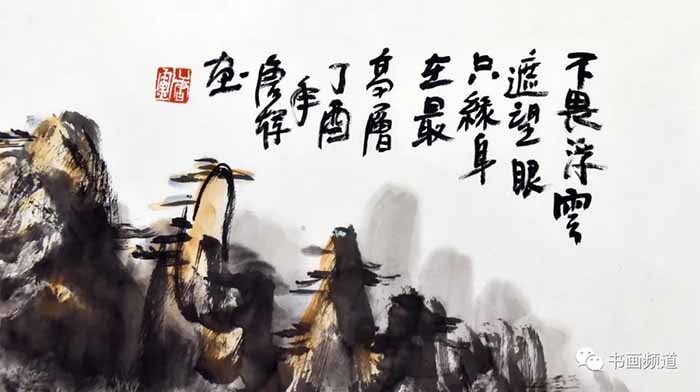 不畏浮雲
遮望眼
只緣身
在最
高層
丁酉
年
唐
画
书画频道